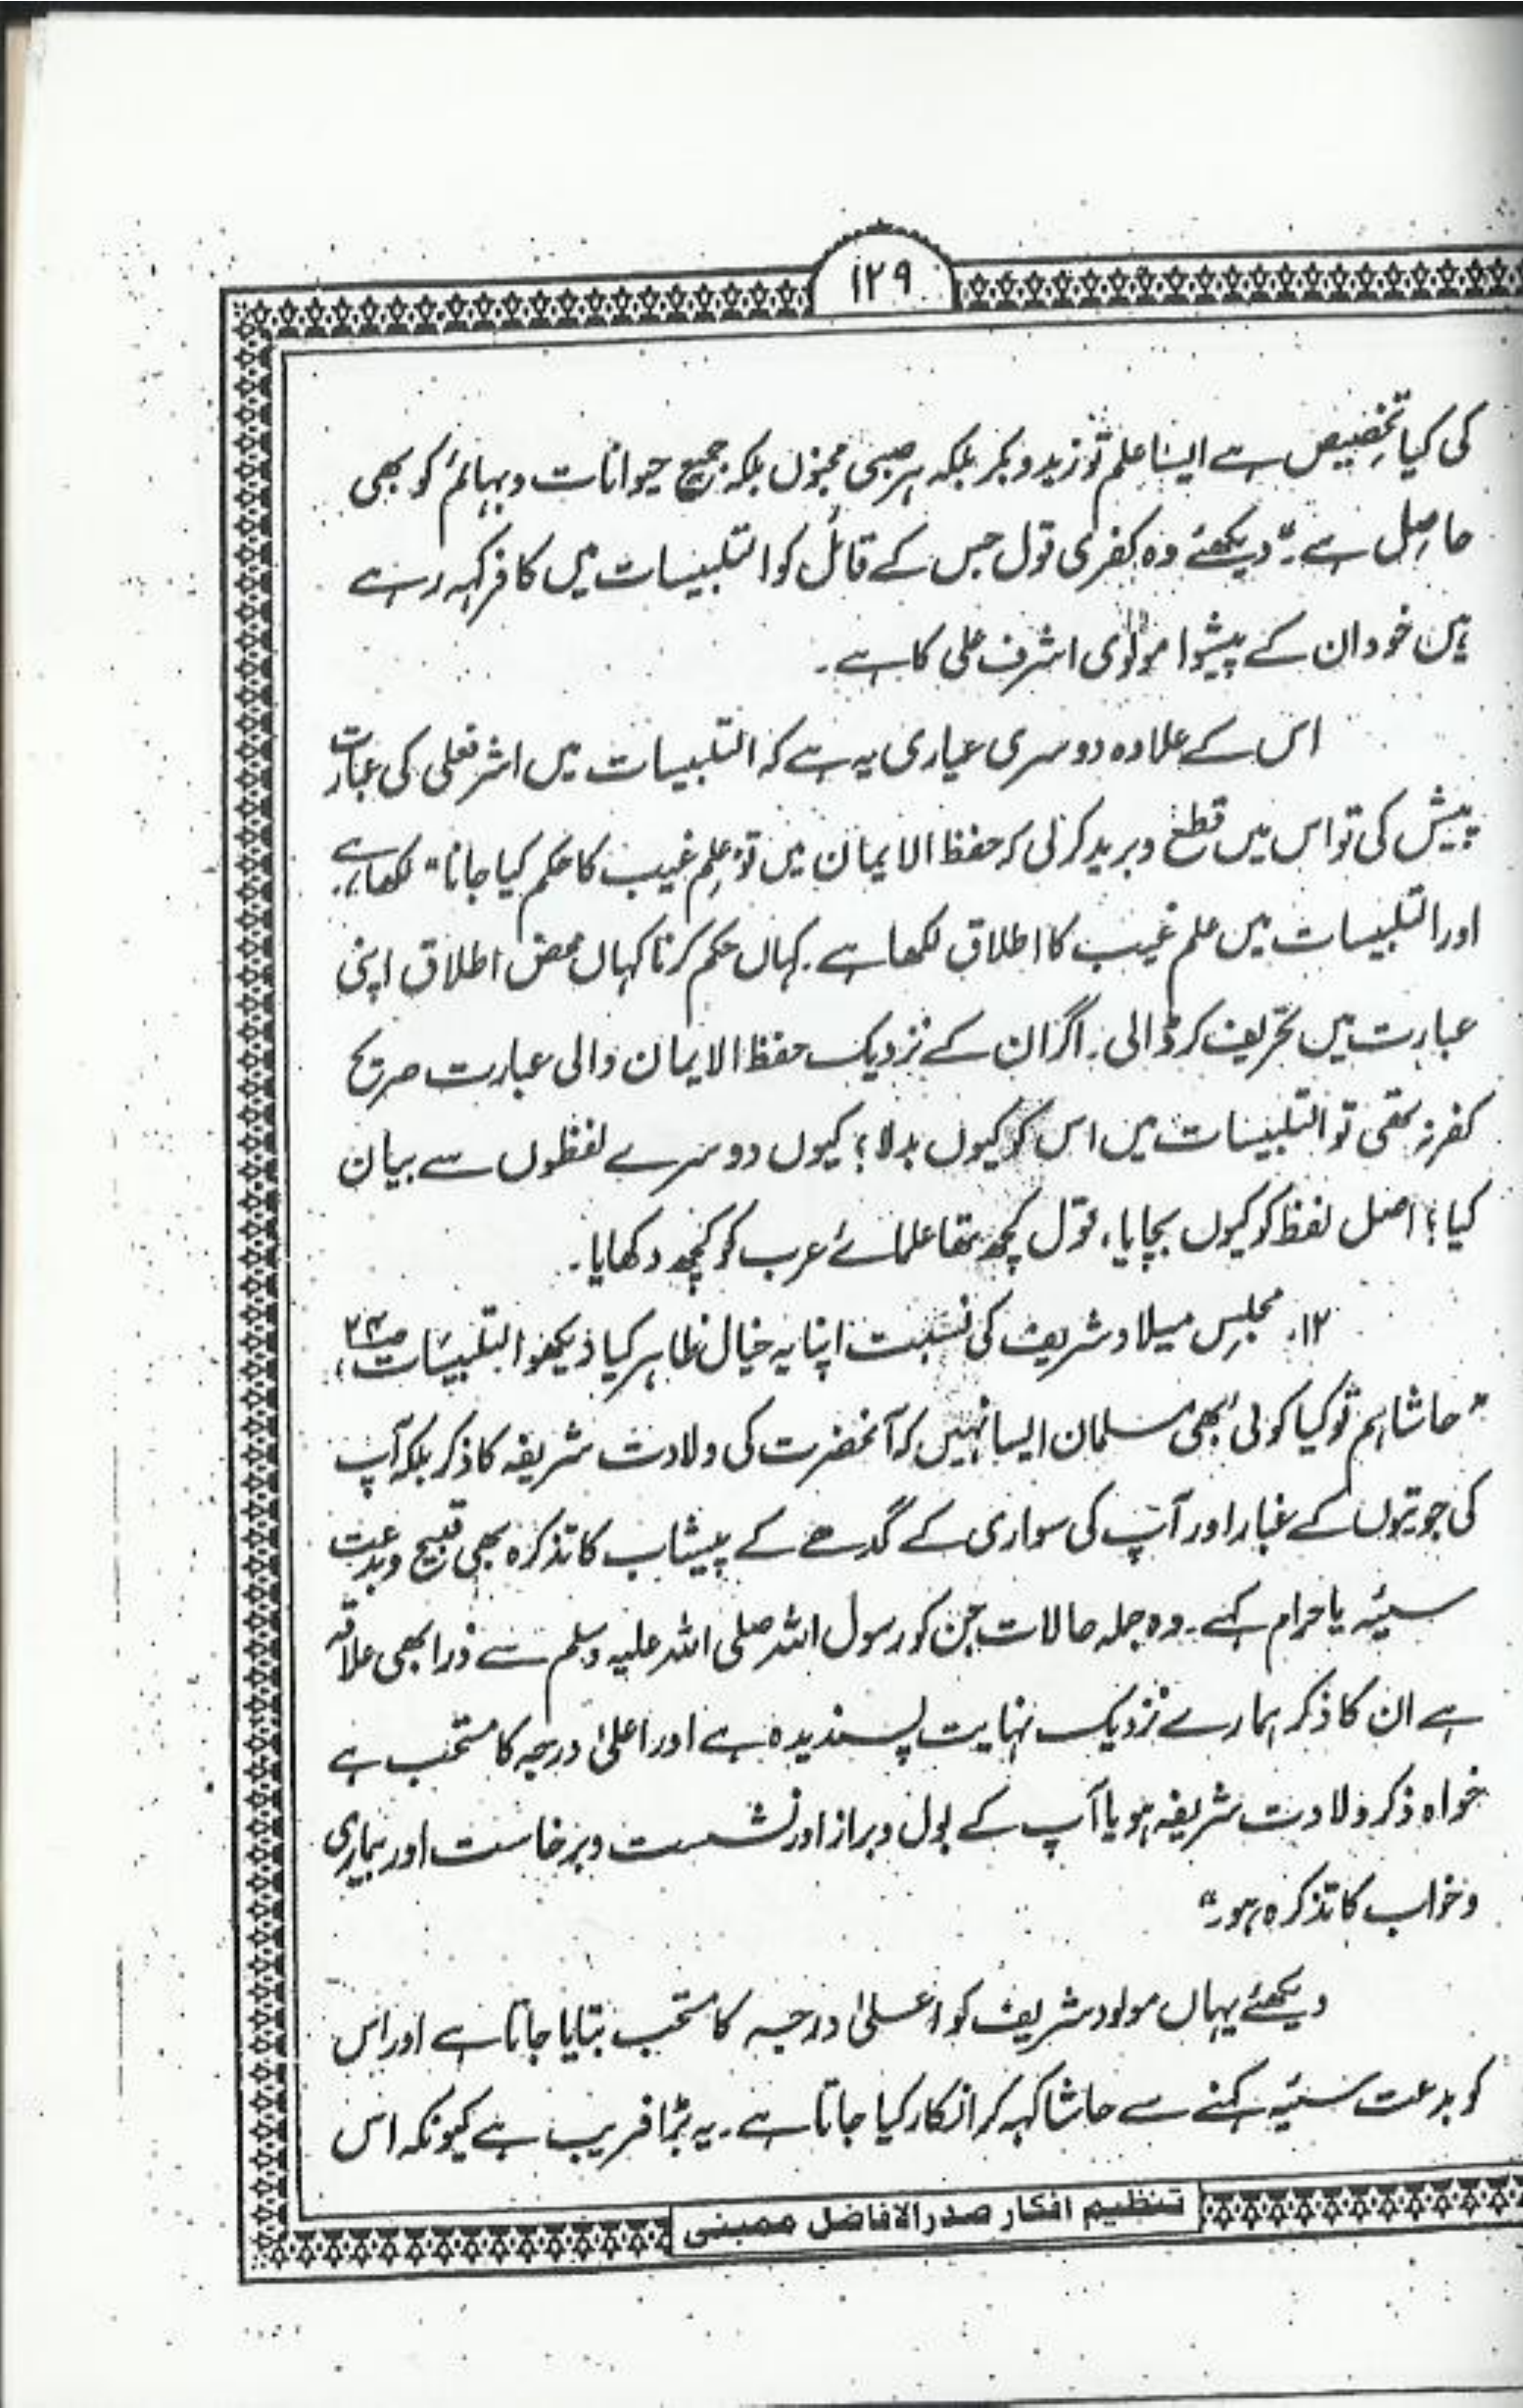 ۱۲۹
کی کیا تخصیص ہے ایسا علم تو زید و بکر بلکہ ہر صبی مجنون بلکہ جمیع حیوانات و بہائم کو بھی
حاصل ہے۔" دیکھئے وہ کفری قول جس کے قائل کو التلبیسات میں کافر کہہ رہے
ہیں خود ان کے پیشوا مولوی اشرف علی کا ہے۔
اس کے علاوہ دوسری عیاری یہ ہے کہ التلبیسات میں اشرفعلی کی عبارت
پیش کی تو اس میں قطع و برید کر لی کہ حفظ الایمان میں تو "علم غیب کا حکم کیا جانا" لکھا ہے،
اور التلبیسات میں علم غیب کا اطلاق لکھا ہے۔ کہاں حکم کرنا کہاں محض اطلاق اپنی
عبارت میں تحریف کر ڈالی۔ اگر ان کے نزدیک حفظ الایمان والی عبارت صریح
کفر نہ تھی تو التلبیسات میں اس کو کیوں بدلا؟ کیوں دوسرے لفظوں سے بیان
کیا؟ اصل لفظ کو کیوں بچایا، قول کچھ تھا علمائے عرب کو کچھ دکھایا۔
۱۲۔ مجلس میلاد شریف کی نسبت اپنا یہ خیال ظاہر کیا دیکھو التلبیسات ص
"حاشا ہم تو کیا کوئی بھی مسلمان ایسا نہیں کہ آنحضرت کی ولادت شریفہ کا ذکر بلکہ آپ
کی جوتیوں کے غبار اور آپ کی سواری کے گدھے کے پیشاب کا تذکرہ بھی قبیح و بدعت
سیئہ یا حرام کہے۔ وہ جملہ حالات جن کو رسول اللہ صلی اللہ علیہ وسلم سے ذرا بھی علاقہ
ہے ان کا ذکر ہمارے نزدیک نہایت پسندیدہ ہے اور اعلیٰ درجہ کا مستحب ہے
خواہ ذکر ولادت شریفہ ہو یا آپ کے بول و براز اور نشست و برخاست اور بیماری
و خواب کا تذکرہ ہو۔"
دیکھئے یہاں مولود شریف کو اعلیٰ درجہ کا مستحب بتایا جاتا ہے اور اس
کو بدعت سیئہ کہنے سے حاشا کہہ کر انکار کیا جاتا ہے۔ یہ بڑا فریب ہے کیونکہ اس
تنظیم افکار صدر الافاضل ممبئی